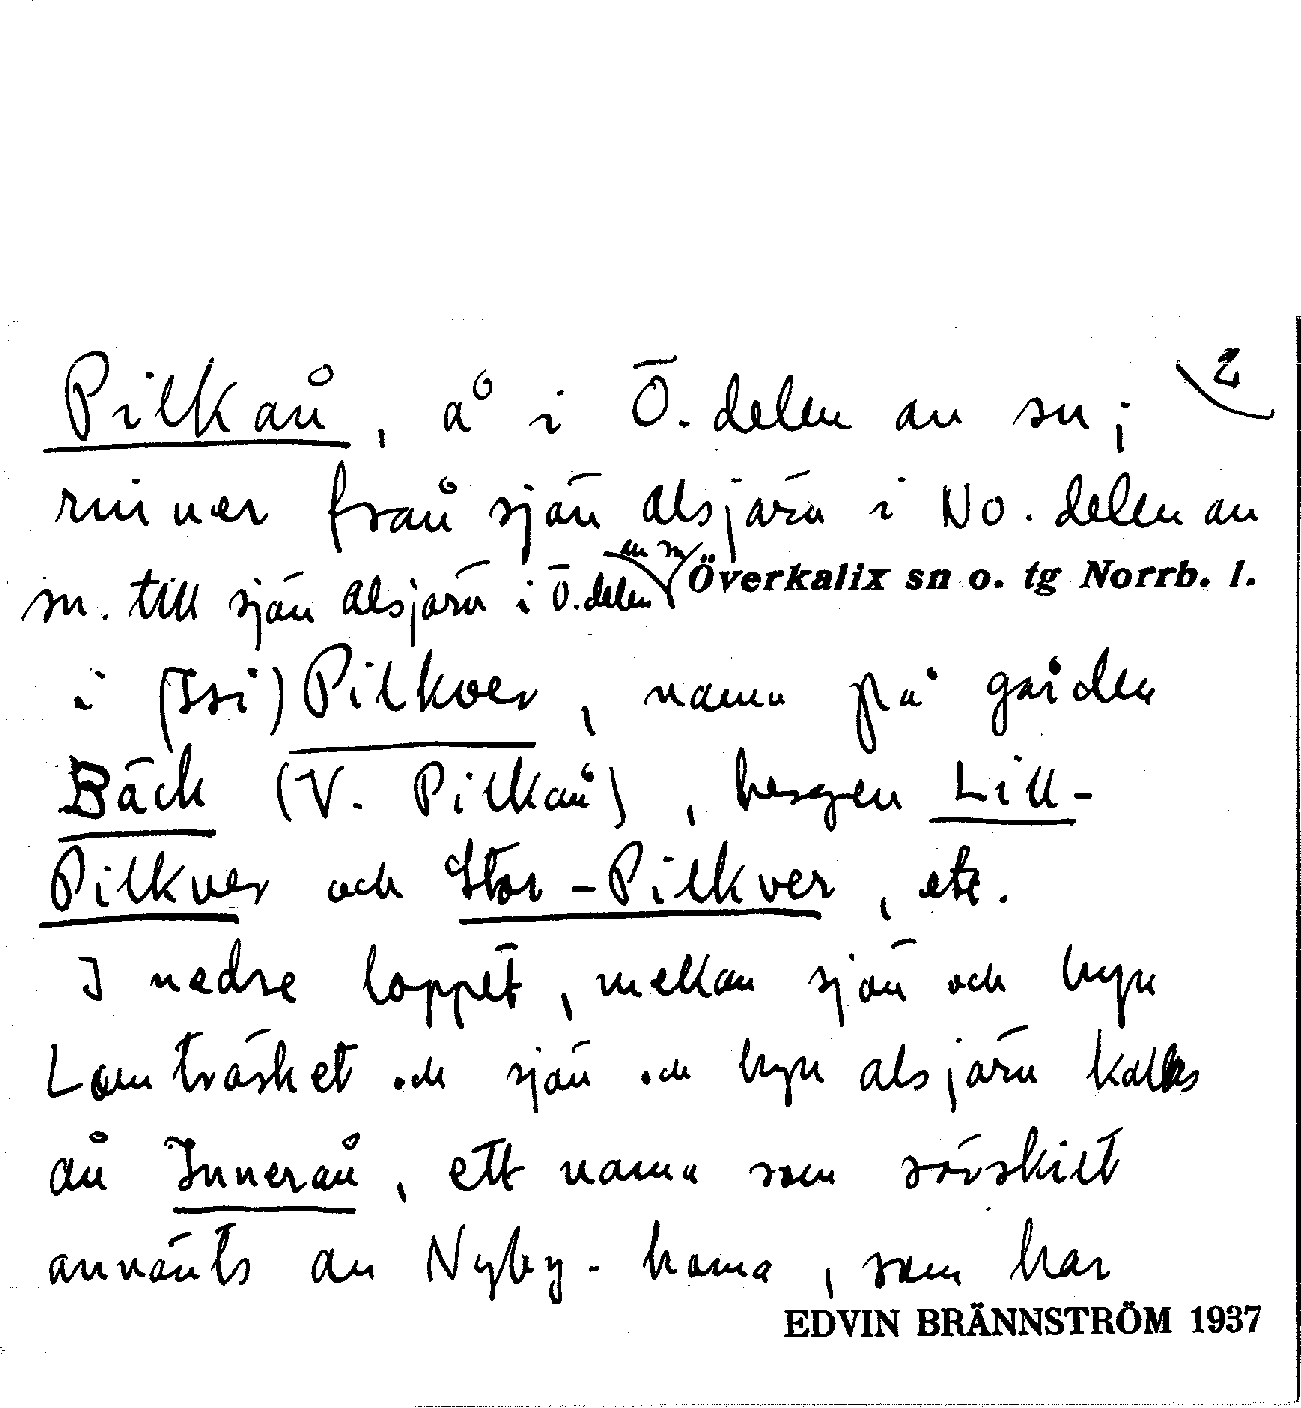 2
Pilkån, å i Ö. delen av sn;
rinner från sjön Alsjärv i NO. delen av
sn. till sjön Alsjärv i Ö. delen av sn
Överkalix sn o. tg Norrb. l.
i (Isi) Pilkver, namn på gården
Bäck (V. Pilkån), bergen Lill-
Pilkver och Stor-Pilkver, etc.
I nedre loppet, mellan sjön och byn
Lomträsket och sjön och byn Alsjärv kallas
ån Innerån, ett namn som särskilt
använts av Nyby-borna, som har
EDVIN BRÄNNSTRÖM 1937